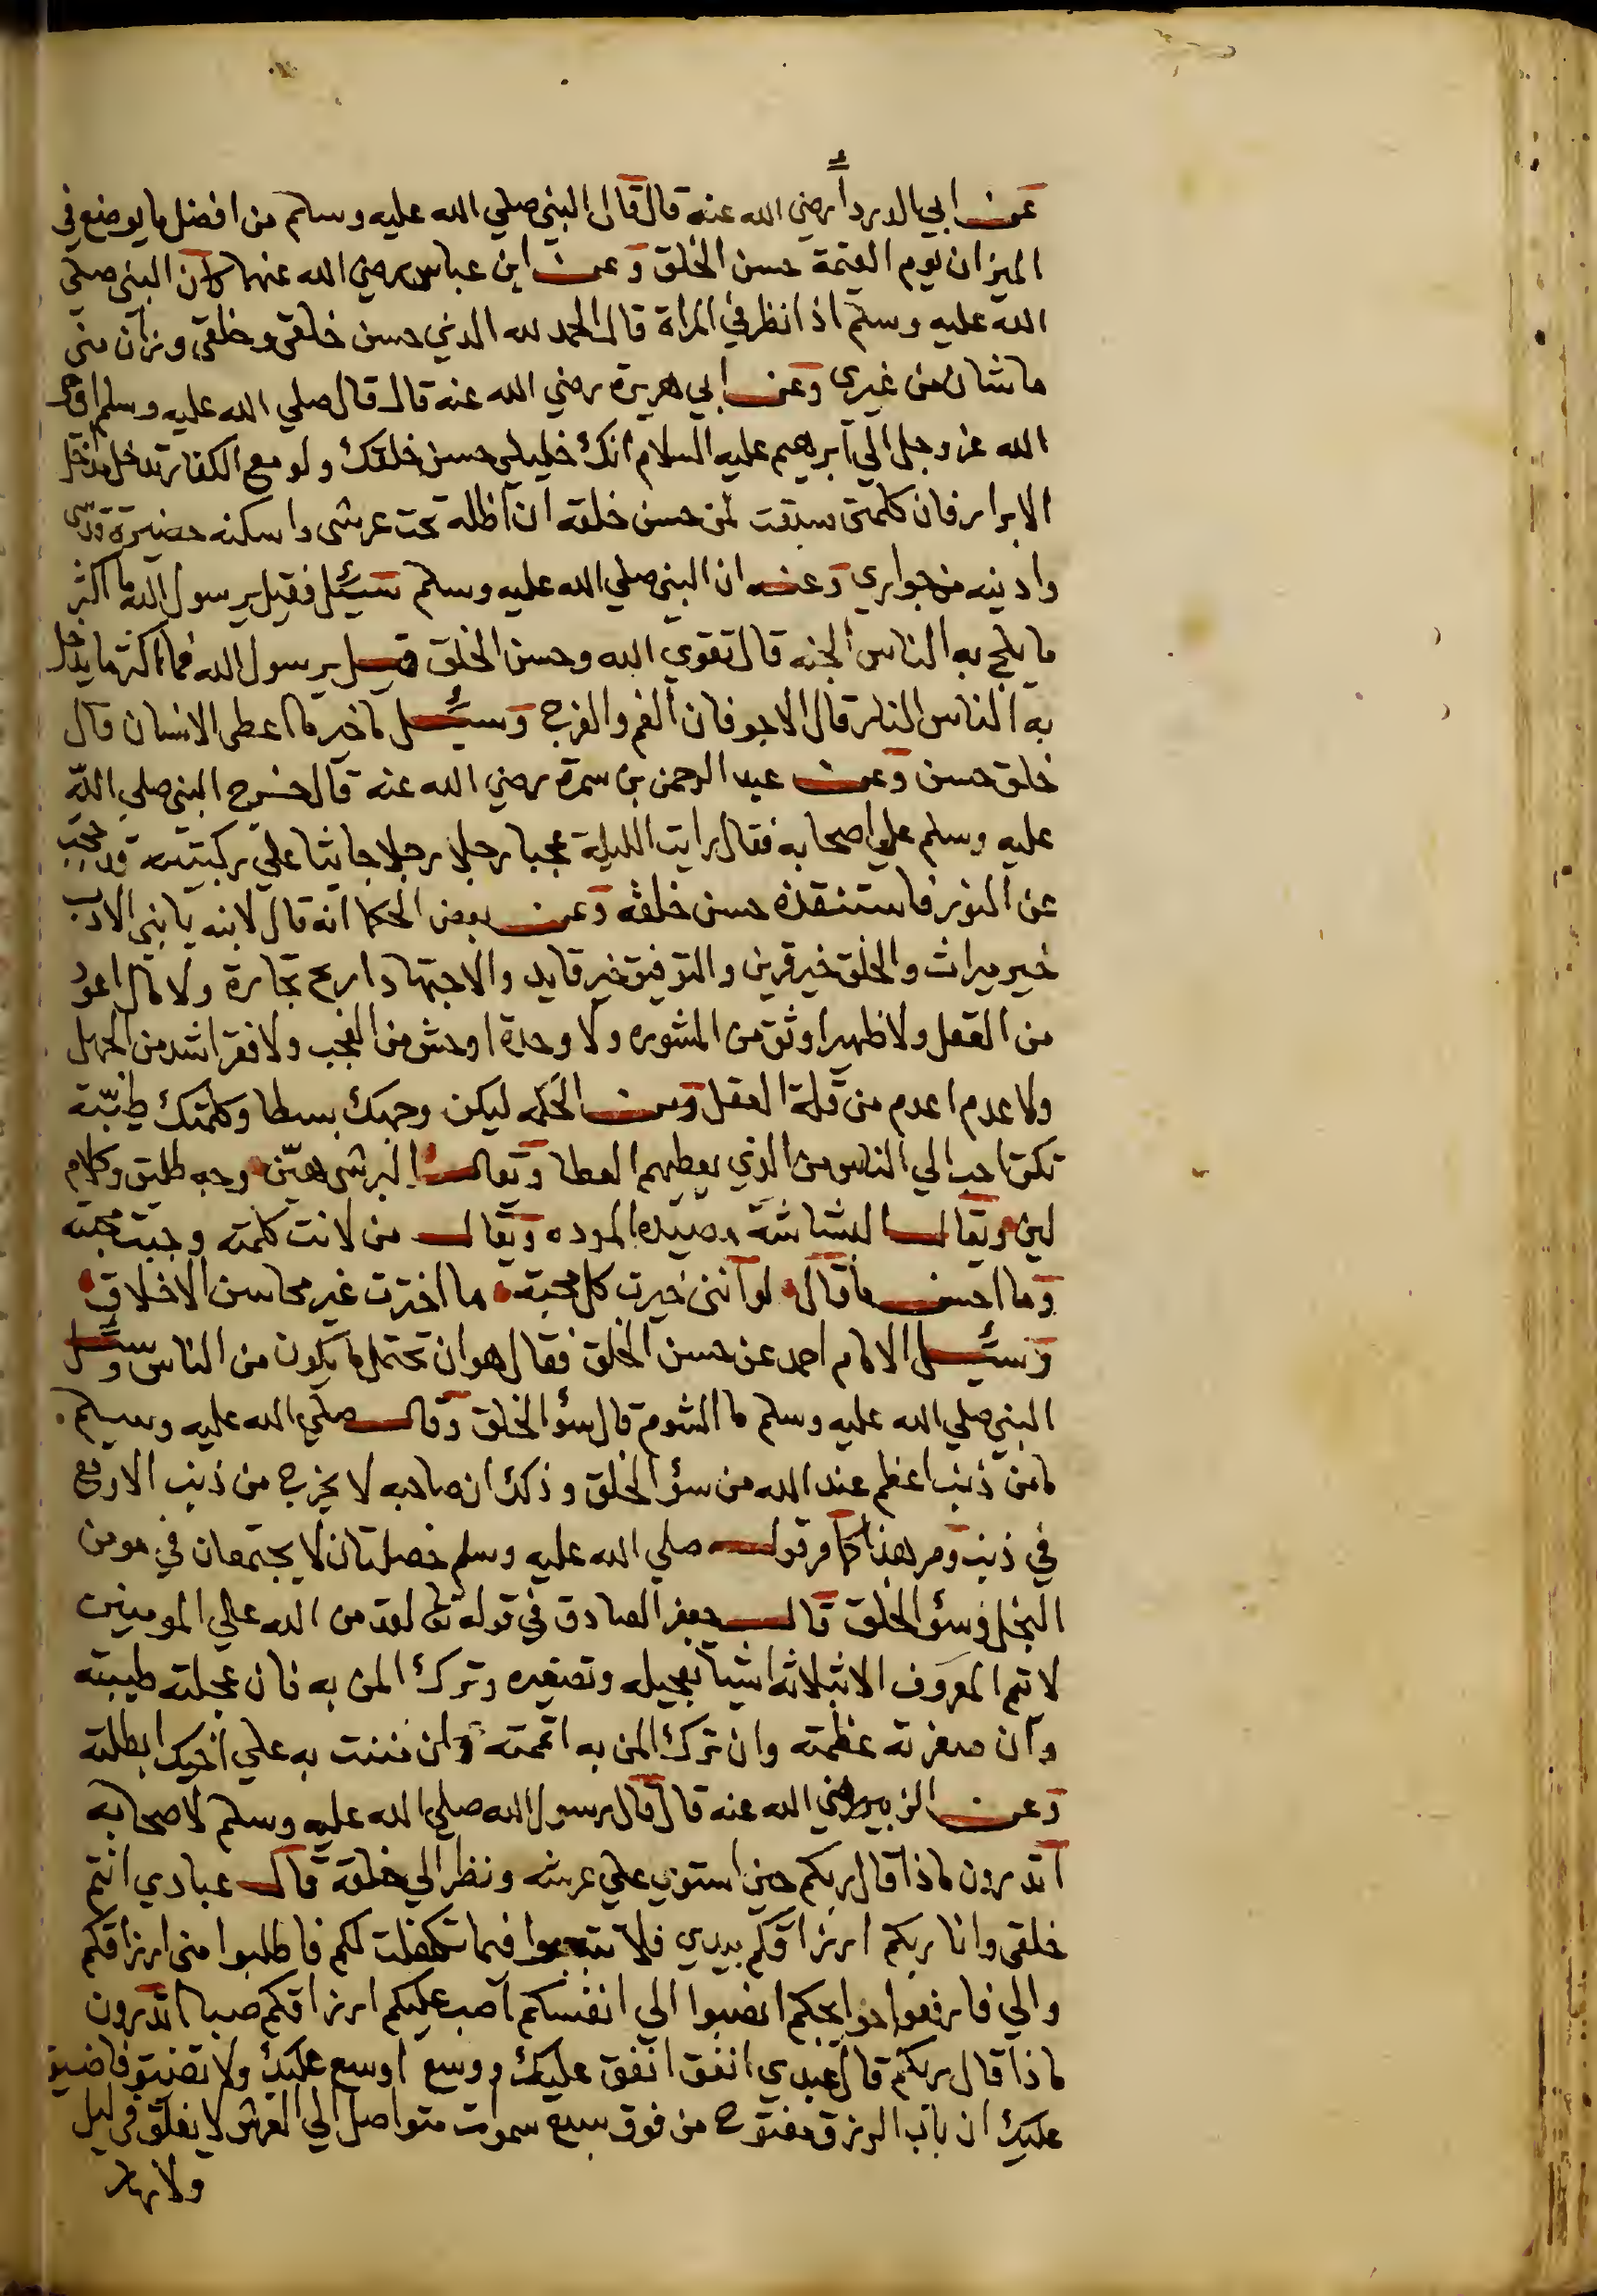 عن ابي الدرداء رضي الله عنه قال قال النبي صلي الله عليه وسلم من افضل ما يوضع في
الميزان يوم القيمة حسن الخلق وعن ابن عباس رضي الله عنهما كان النبي صلي
الله عليه وسلم اذا نظر في المراة قال الحمد لله الذي حسن خلقي وخلقي وزان مني
ما شان من غيري وعن ابي هريرة رضي الله عنه قال قال صلي الله عليه وسلم اوحى
الله عز وجل الي ابرهيم عليه السلام انك خليلي حسن خلقك ولو مع الكفار تدخل مدخل
الابرار فان كلمتي سبقت لمن حسن خلقه ان اظله تحت عرشي واسكنه حضيرة قدسي
وادنيه من جواري وعنه ان النبي صلي الله عليه وسلم سيئل فقيل يرسول الله ما اكثر
ما يلج به الناس الجنه قال تقوي الله وحسن الخلق قيل يرسول الله فما اكثر ما يدخل
به الناس النار قال الاجوفان الفم والفرج وسيئل ما خير ما اعطى الانسان قال
خلق حسن وعن عبد الرحمن بن سمرة رضي الله عنه قال خرج النبي صلي الله
عليه وسلم علي اصحابه فقال رايت الليلة عجبا رجلا رجلا جاثيا علي ركبتيه قد حجب
عن النور فاستنقذه حسن خلقه وعن بعض الحكما انه قال لابنه يا بني الادب
خير ميراث والخلق خير قرين والتوفيق خير قايد والاجتهاد اربح تجارة ولا مال اعود
من العقل ولا ظهير اوثق من المشوره ولا وحدة اوحش من العجب ولا فقر اشد من الجهل
ولا عدم اعدم من قلة العقل ومن الحكمه ليكن وجهك بسطا وكلمتك طيّبة
تكن احب الي الناس من الذي يعطيهم العطا ويقال البر شي هيّن وجه طليق وكلام
لين ويقال البشاشة مصيده الموده ويقال من لانت كلمته وجبت محبته
وما احسن ما قال لو انني خيرت كل محبة ما اخترت غير محاسن الاخلاق
وسيئل الامام احمد عن حسن الخلق فقال هو ان تحتمل ما يكون من الناس وسئل
النبي صلي الله عليه وسلم ما الشوم قال سؤ الخلق وقال صلي الله عليه وسلم
ما من ذنب اعظم عند الله من سؤ الخلق وذلك ان صاحبه لا يخرج من ذنب الا وقع
في ذنب ومر هذا كما مر قوله صلي الله عليه وسلم خصلتان لا يجتمعان في مومن
البخل وسؤ الخلق قال جعفر الصادق في قوله تعالى لقد من الله علي المومنين
لا يتم المعروف الا بثلاثه اشيا تعجيله وتصغيره وترك المن به فان عجلته طيبته
وان صغرته عظمته وان ترك المن به اتممته وان مننت به علي اخيك ابطلته
وعن الزبير رضي الله عنه قال قال رسول الله صلي الله عليه وسلم لاصحابه
اتدرون ماذا قال ربكم حين استوي علي عرشه ونظر الي خلقه قال عبادي انتم
خلقي وانا ربكم ارزاقكم بيدي فلا تتعبوا فيما تكفلت لكم فاطلبوا مني ارزاقكم
والي فارفعوا حوايجكم انصبوا الي انفسكم اصب عليكم ارزاقكم صبا اتدرون
ماذا قال ربكم قال عبدي انفق انفق عليك ووسع اوسع عليك ولا تضيق فاضيق
عليك ان باب الرزق مفتوح من فوق سبع سموات متواصل الي العرش لا يغلق في ليل
ولا نهار